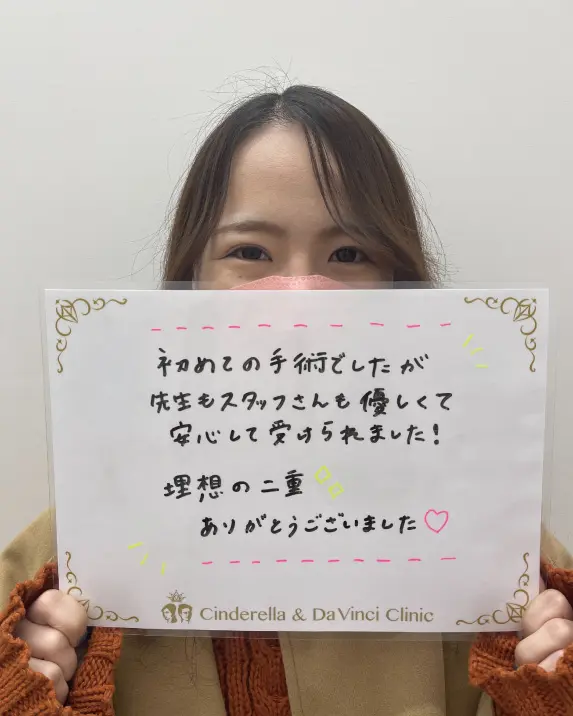 初めての手術でしたが
先生もスタッフさんも優しくて
安心して受けられました!
理想の二重
ありがとうございました♡
Cinderella & DaVinci Clinic